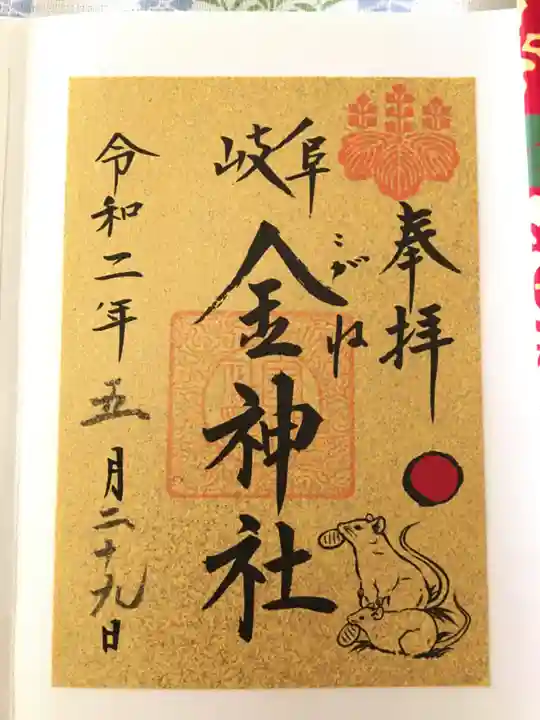 奉拝
岐阜
金神社
こがね
令和二年五月二十九日